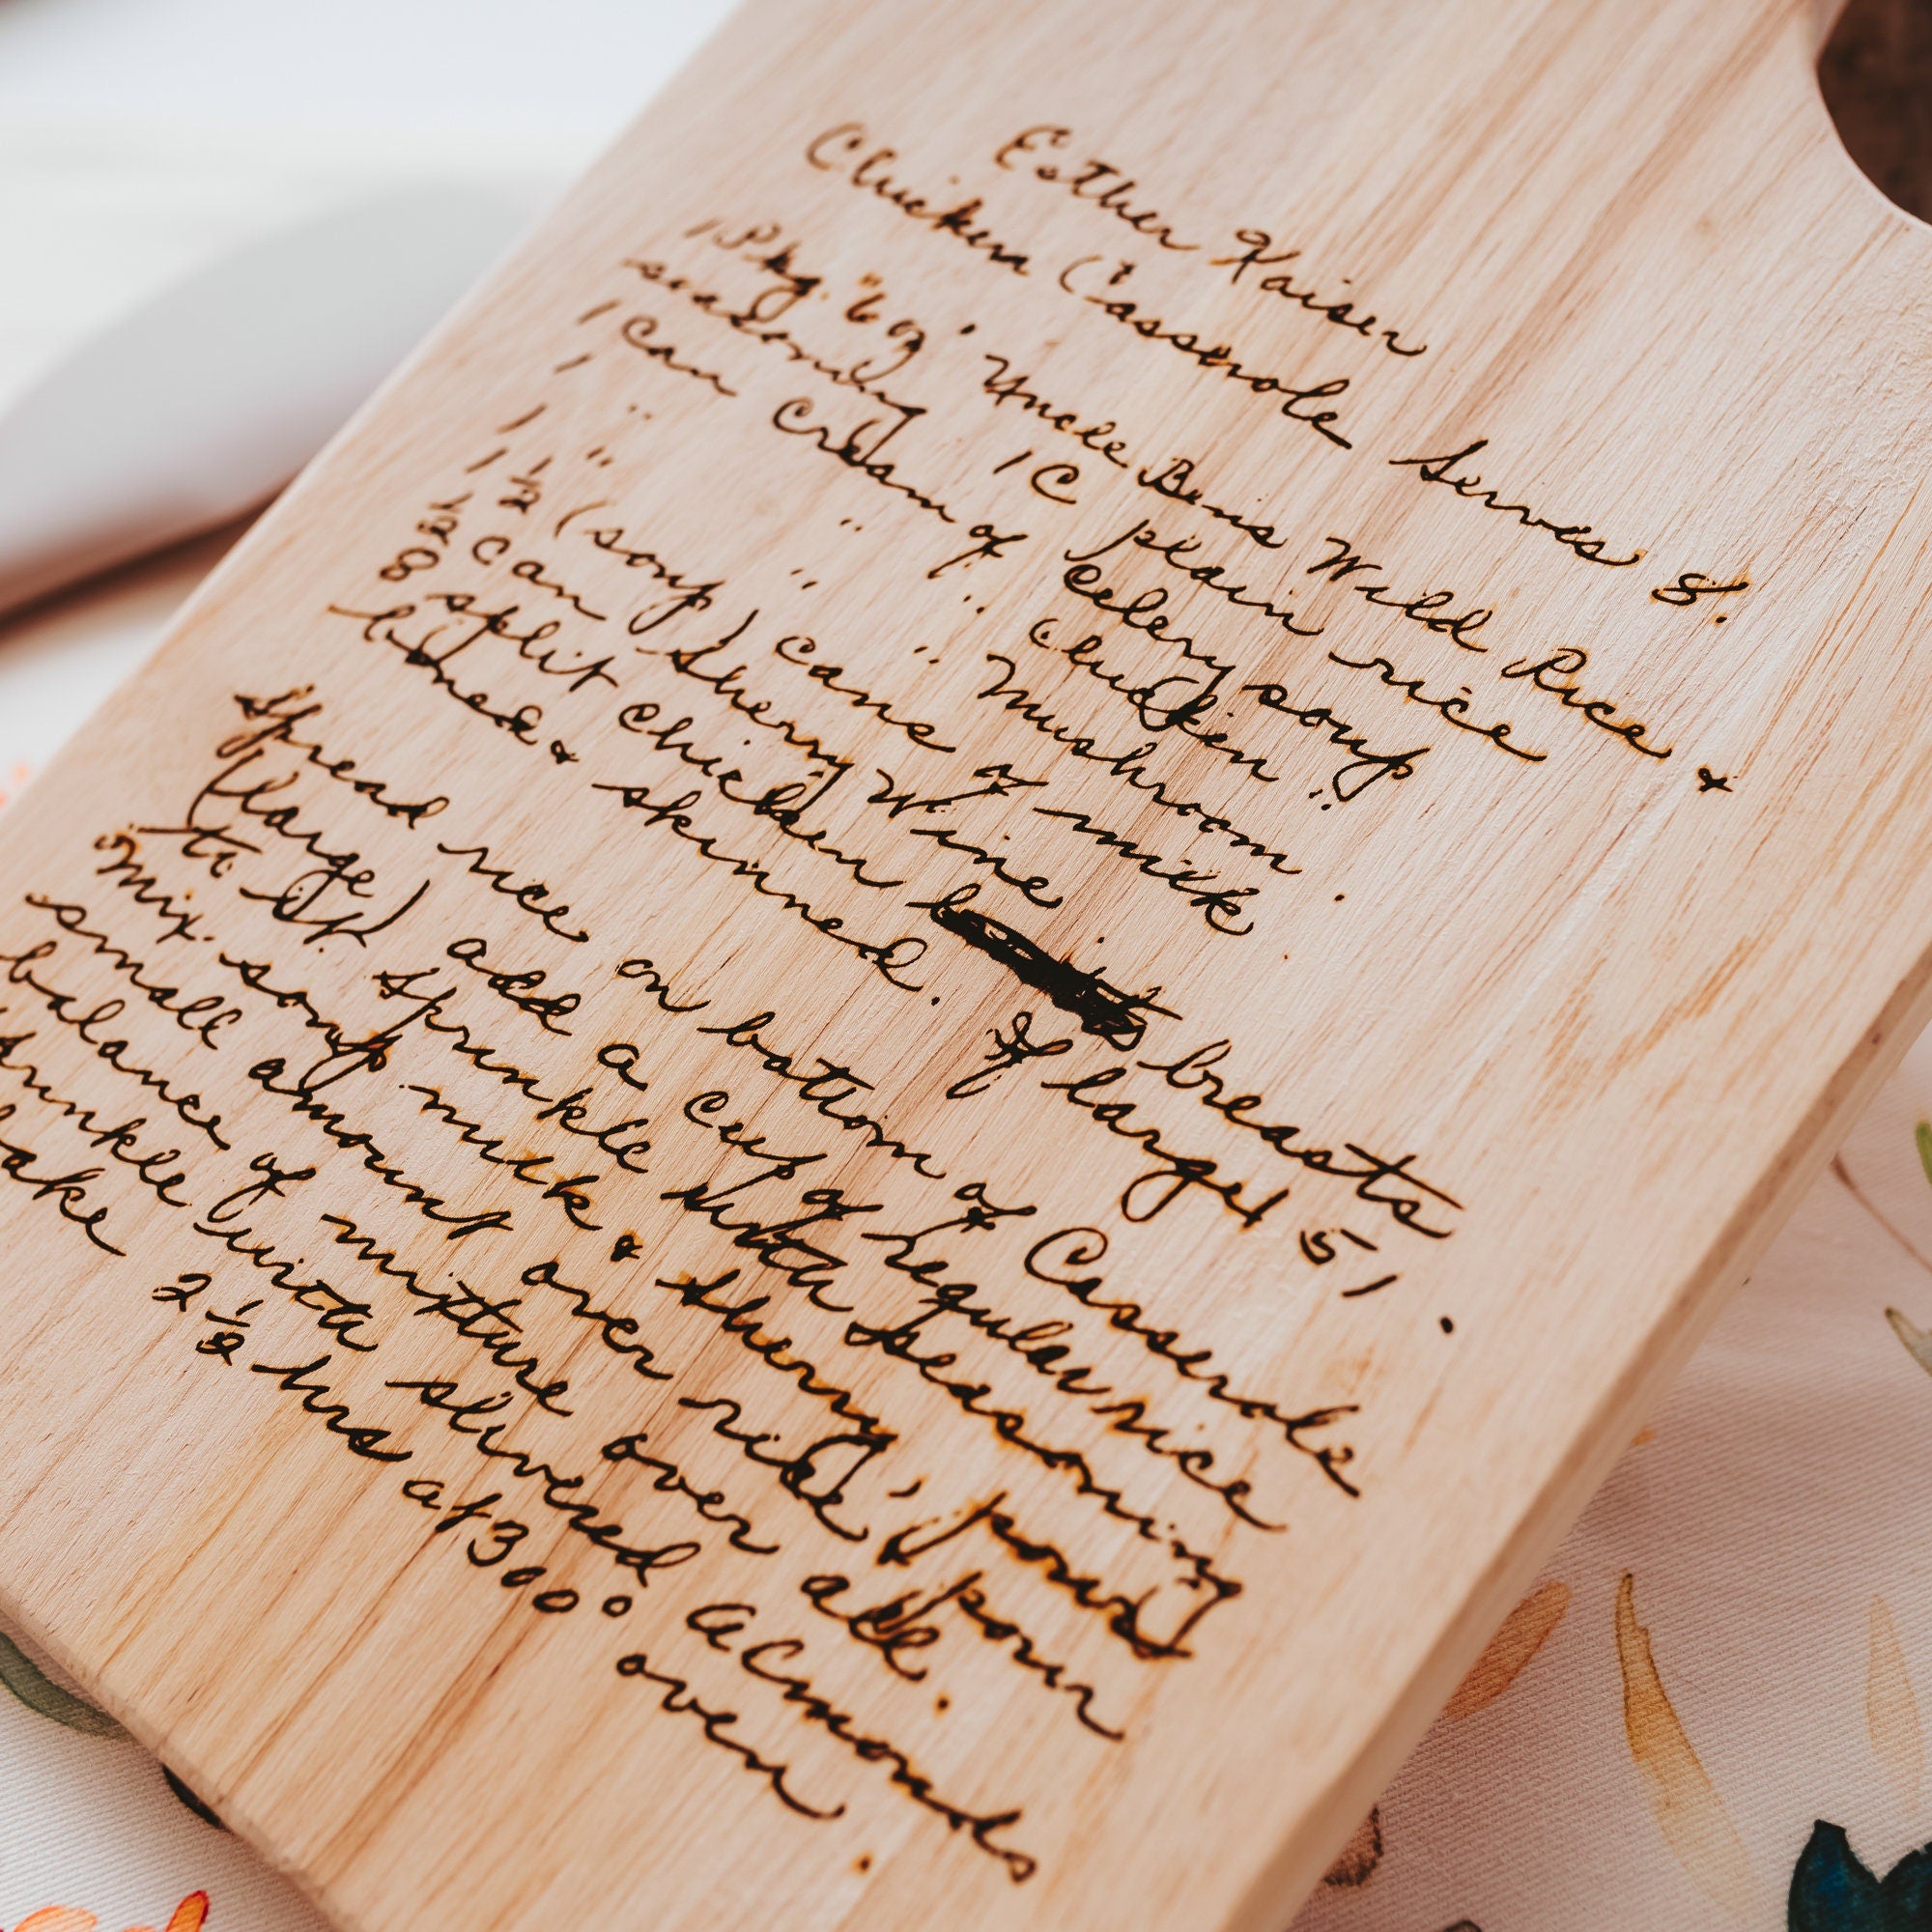 Esther Kaiser
Chicken Casserole Serves 8.
1 Pkg. "6 oz" Uncle Bens Wild Rice &
seasoning 1 C plain rice
1 Can Cream of Celery soup
1 " " " Chicken "
1 " " " Mushroom.
1 1/2 (soup) cans of milk
1/2 Can Sherry Wine
8 split chicken breasts
boned & skinned. If large, 5.
Spread rice on bottom of Casserole
(large) add a cup of regular rice
to it. Sprinkle with seasoning
Mix soup milk & sherry, pour
small amount over rice, pour
balance of mixture over all.
Sprinkle with slivered almonds
bake 2 1/2 hrs at 300° oven.